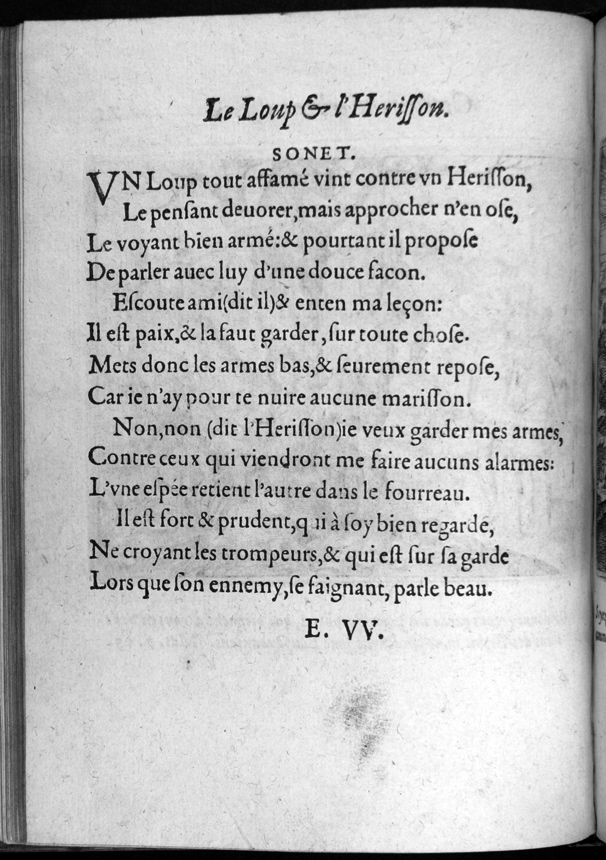 Le Loup & l'Heriſſon.
SONET.
VN Loup tout affamé vint contre vn Heriſſon,
Le penſant deuorer, mais approcher n'en oſe,
Le voyant bien armé: & pourtant il propoſe
De parler auec luy d'vne douce facon.
Eſcoute ami (dit il) & enten ma leçon:
Il eſt paix, & la faut garder, ſur toute choſe.
Mets donc les armes bas, & ſeurement repoſe,
Car ie n'ay pour te nuire aucune mariſſon.
Non, non (dit l'Heriſſon) ie veux garder mes armes,
Contre ceux qui viendront me faire aucuns alarmes:
L'vne eſpée retient l'autre dans le fourreau.
Il eſt fort & prudent, qui à ſoy bien regarde,
Ne croyant les trompeurs, & qui eſt ſur ſa garde
Lors que ſon ennemy, ſe faignant, parle beau.
E. VV.